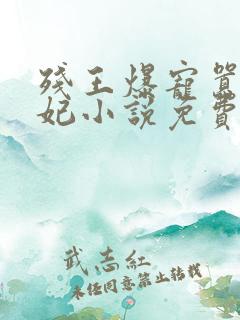 残王爆宠嚣
妃小说免费
武志红
未经同意禁止转载